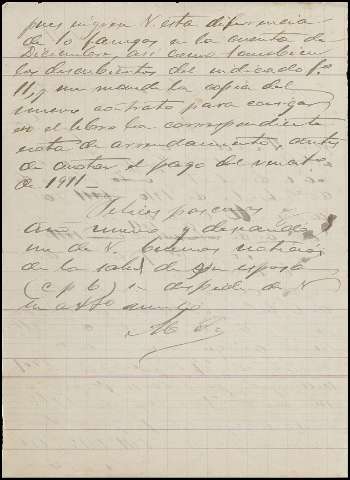 pues ingrese V. esta diferencia
de 10 fanegas en la cuenta de
Diciembre, así como tambien
los descubiertos del indicado Sr.
11, y me manda la copia del
nuevo contrato para consignar
en el libro la correspondiente
nota de arrendamiento, antes
de anotar el pago del
de 1911.
Felices pascuas
año nuevo y deseando
me de V. buenas noticias
de la salud de su esposa
(c p b) se despide de V
su affmo amigo